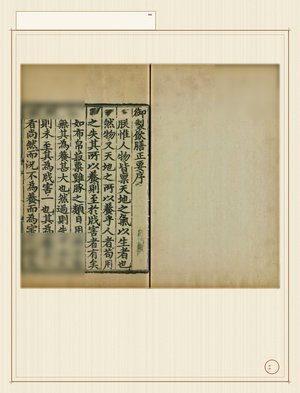 御製飲膳正要序
朕惟人物皆稟天地之氣以生者也
然物又天地之所以養乎人者苟用
之失其所以養則至於戕害者有矣
如布帛菽粟雞豚之類日用
無其為養甚大也然過則失
則未至其為戕害一也其為
者尚然而況不為養而為害